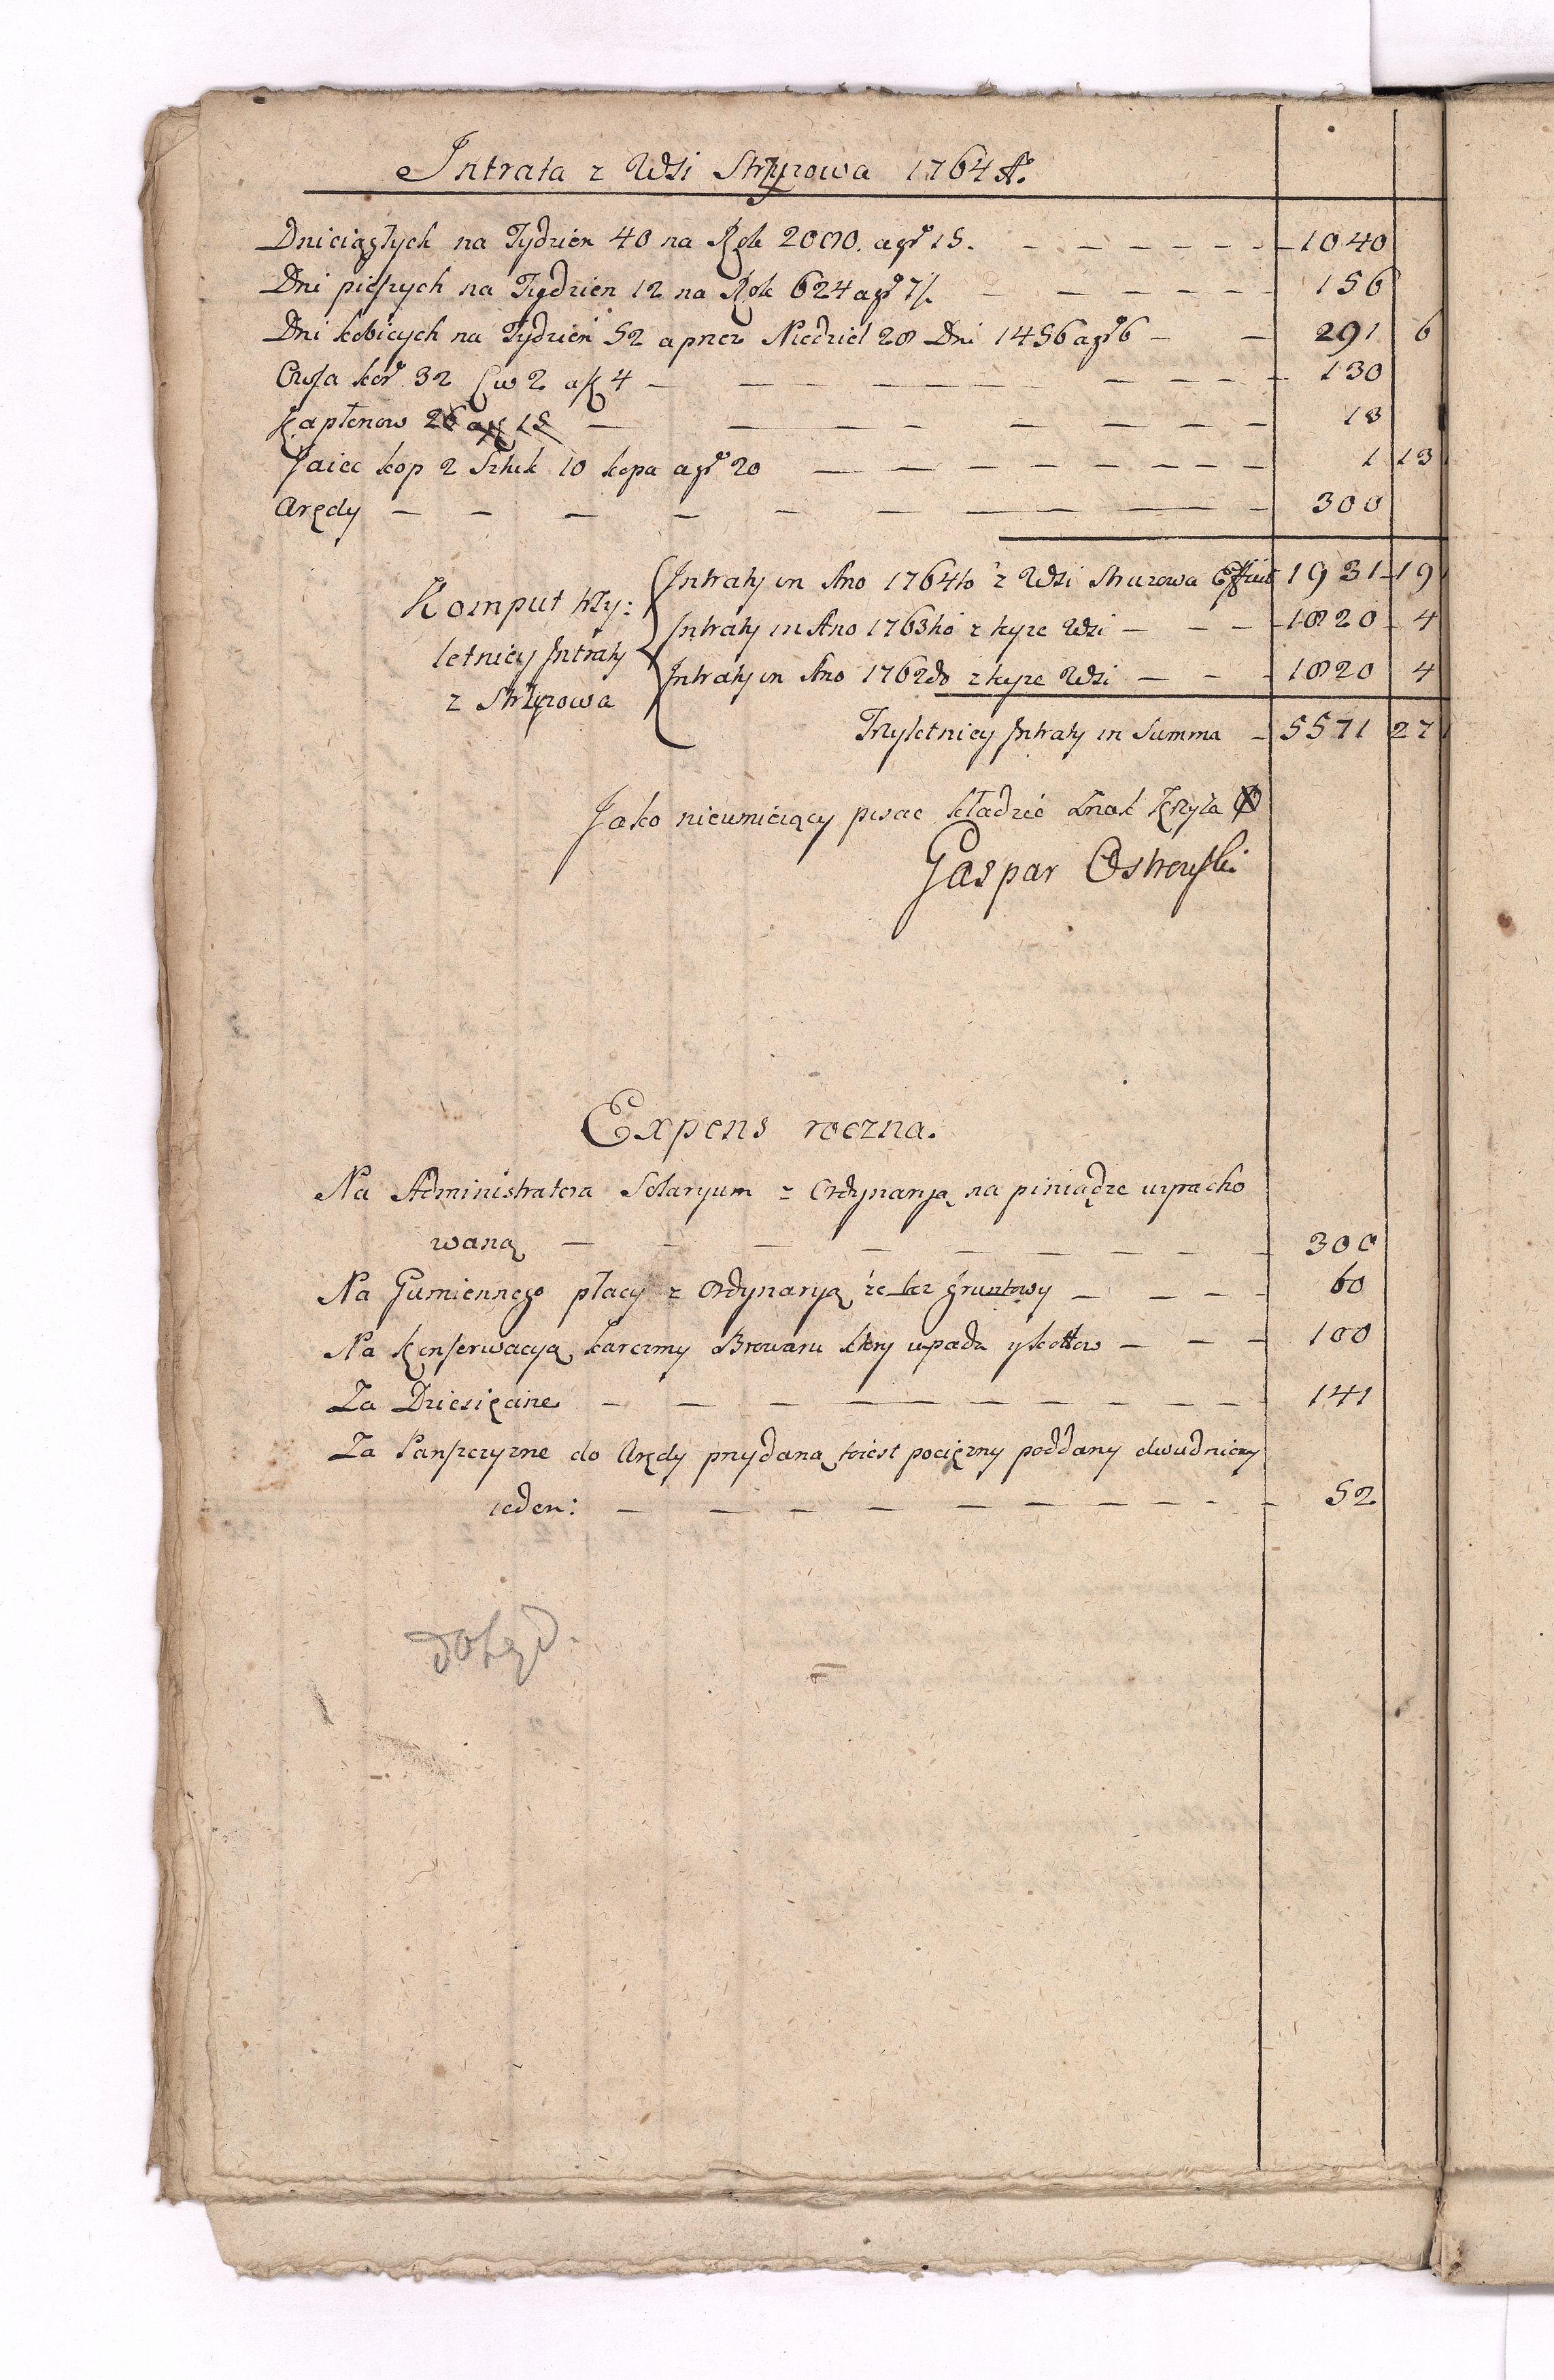 Intrata z Wsi Strzyzowa 1764 Ao.
Dni ciągłych na Tydzien 40 na Rok 2080. a gro 15. — 1040
Dni pieszych na Tydzien 12 na Rok 624 a gro 7/. — 156
Dni kobicych na Tydzien 52 a przez Niedziel 28 Dni 1456 a gro 6 — 291 6
Owsa kor 32 Cw 2 a 4 — 130
Kapłonow 26 a 15 — 13
Jaiec kop 2 Sztuk 10 kopa a gro 20 — 1 13
Arędy — 300
Komput trzy:
letnicy Jntraty
z Strzyzowa
Jntraty in Ano 1764to z Wsi Strzyzowa 1931 19
Jntraty in Ano 1763tio z teyze Wsi — 1820 4
Jntraty in Ano 1762do z teyze Wsi — 1820 4
Trzyletnicy Jntraty in Summa — 5571 27
Jako nieumieiący pisac kładzie Znak Krzyża X
Gaspar Ostrowski
Expens roczna.
Na Administratora Solaryum z Ordynaryą na piniądze wyracho
waną — 300
Na Gumiennego płacy z Ordynaryą że bez gruntowy — 60
Na Konserwacyą karczmy Browaru ktory upada y kotłow — 100
Za Dziesięcine — 141
Za Panszczyzne do Arędy przydaną toiest pocięzny poddany dwudniowy
ieden: — 52
dotąd.